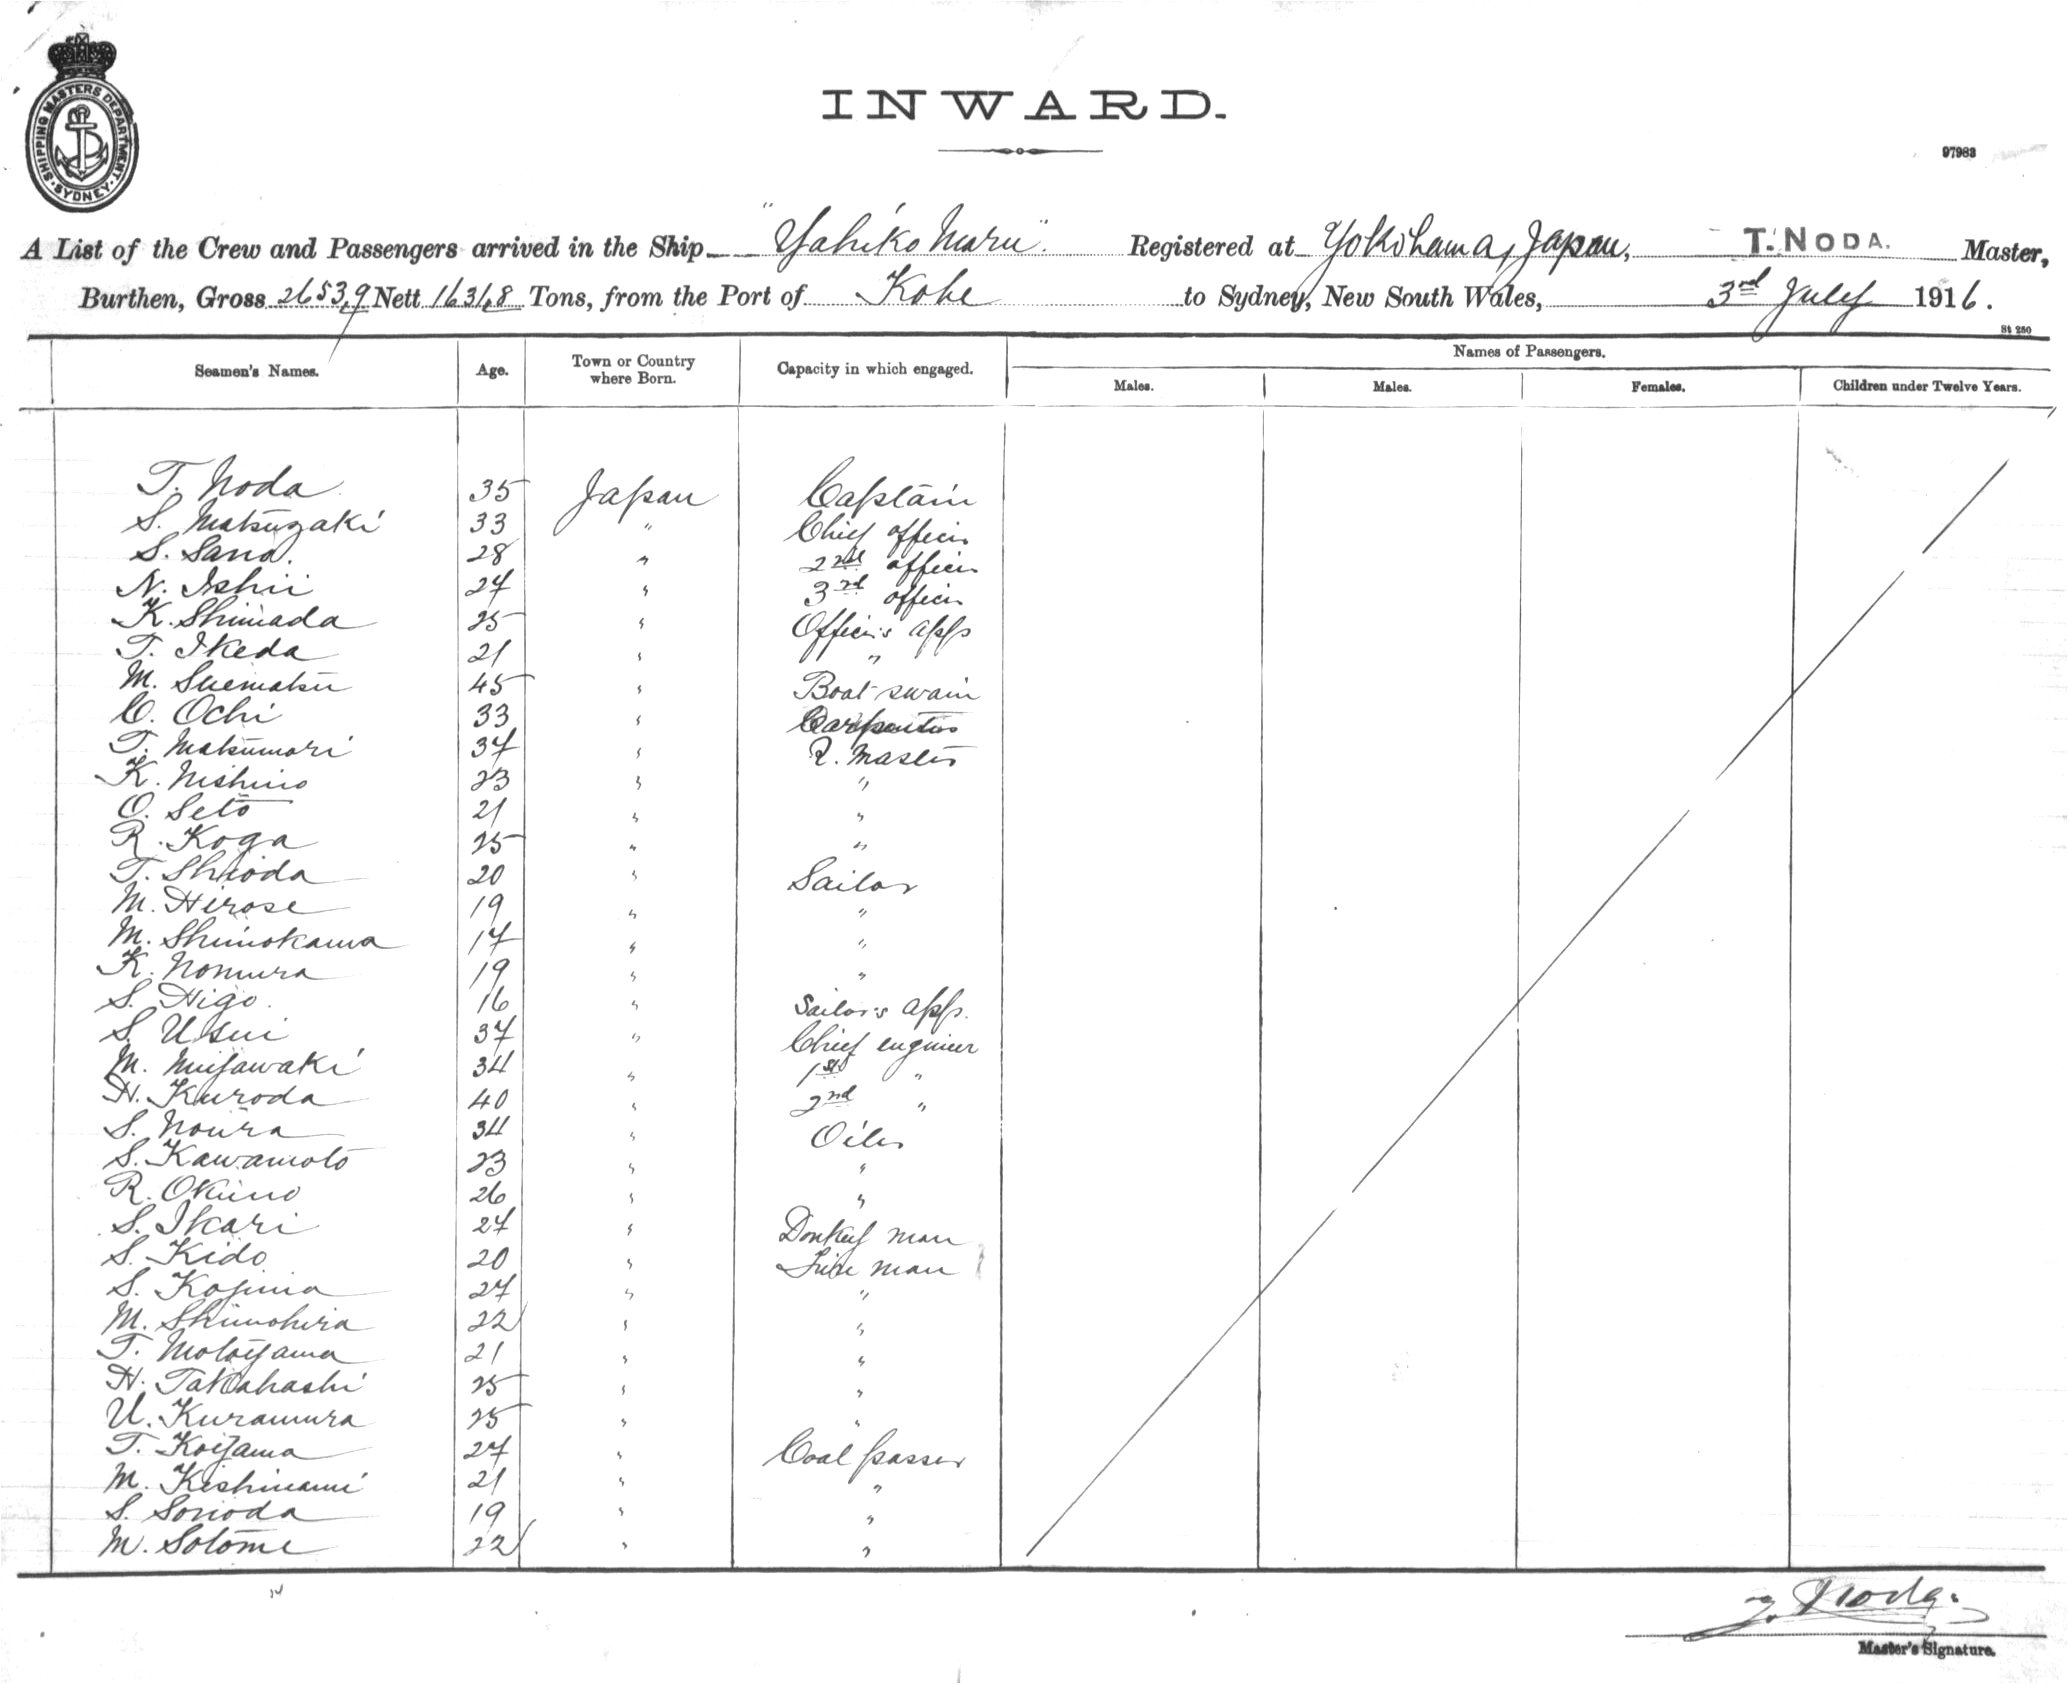 SHIPPING MASTERS DEPARTMENT
SYDNEY
INWARD.
97983
A List of the Crew and Passengers arrived in the Ship "Yahiko Maru". Registered at Yokohama, Japan, T. NODA. Master,
Burthen, Gross 2653,9 Nett 1631,8 Tons, from the Port of Kobe to Sydney, New South Wales, 3rd July 1916.
St 250
Seamen's Names. Age. Town or Country where Born. Capacity in which engaged. Names of Passengers.
Males. Males. Females. Children under Twelve Years.
T. Noda 35 Japan Captain
S. Matsuzaki 33 " Chief officer
S. Sano. 28 " 2nd officer
N. Ishii 27 " 3rd officer
K. Shimada 25 " Officer's app
T. Ikeda 21 " "
M. Suematsu 45 " Boat-swain
C. Ochi 33 " Carpenter
T. Matsumori 37 " Q. Master
K. Nishino 23 " "
O. Seto 21 " "
R. Koga 25 " "
T. Shioda 20 " Sailor
M. Hirose 19 " "
M. Shimokawa 17 " "
K. Nomura 19 " "
S. Higo. 16 " Sailor's app.
S. Usui 37 " Chief engineer
M. Miyawaki 34 " 1st "
H. Kuroda 40 " 2nd "
S. Noura 34 " Oiler
S. Kawamoto 23 " "
R. Okuno 26 " "
S. Ikari 27 " Donkey man
S. Kido 20 " Fire man
S. Kojima 27 " "
M. Shimohira 22 " "
T. Motoyama 21 " "
H. Takahashi 25 " "
U. Kuramura 25 " "
T. Koyama 27 " Coal passer
M. Kishinami 21 " "
S. Sonoda 19 " "
M. Sotome 22 " "
T. Noda.
Master's Signature.